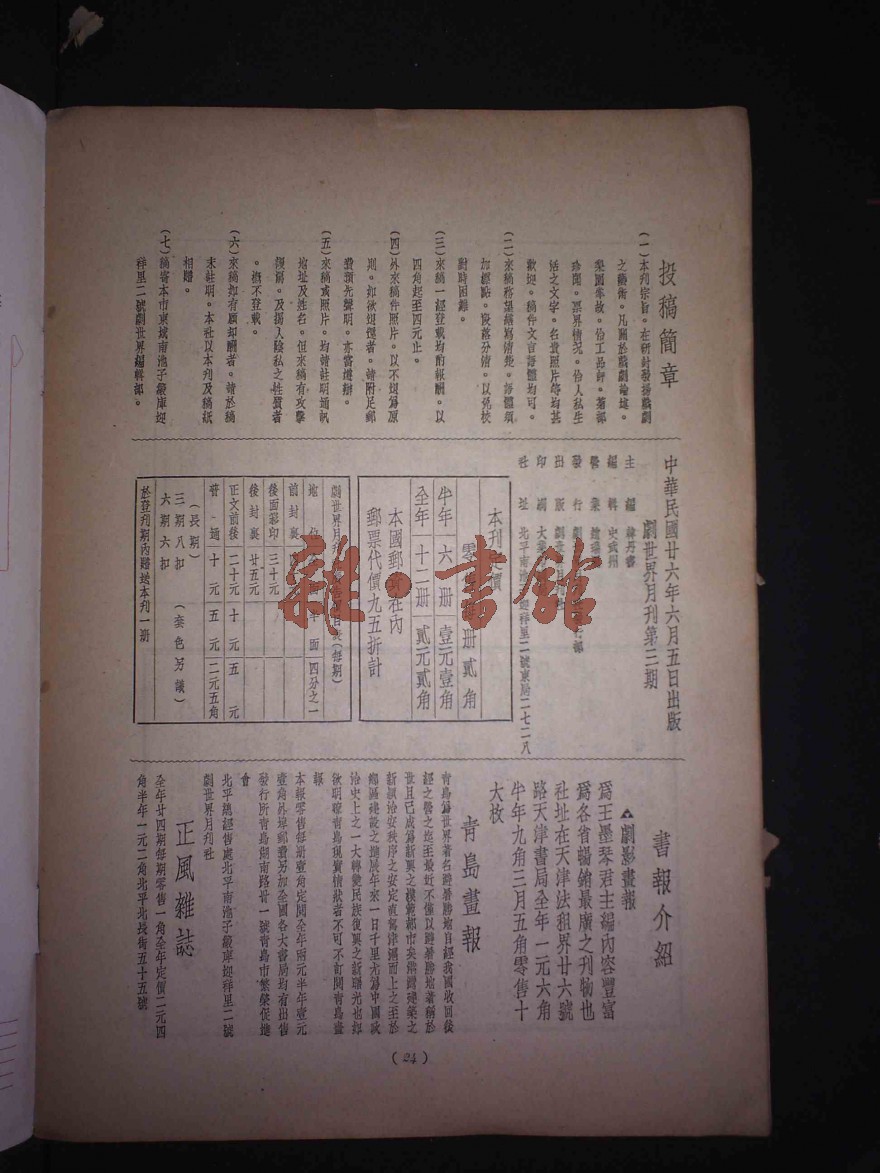 投稿簡章
(一)本刊宗旨。在研討發揚戲劇
之藝術。凡關於戲劇論述。
梨園掌故。伶工品評。菊部
珍聞。票界情況。伶人私生
活之文字。名貴照片等均甚
歡迎。稿件文言語體均可。
(二)來稿務望繕寫清楚。語體須
加標點。段落分清。以免校
對時困難。
(三)來稿一經登載均酌報酬。以
四角起至四元止。
(四)外來稿件照片。以不退為原
則。如欲退還者。請附足郵
費預先聲明。亦當遵辦。
(五)來稿或照片。均請註明通訊
地址及姓名。但來稿有攻擊
謾罵。及揭人陰私之性質者
。概不登載。
(六)來稿如有願却酬者。請於稿
末註明。本社以本刊及稿紙
相贈。
(七)稿寄本市東城南池子緞庫迎
祥里二號劇世界編輯部。
中華民國廿六年六月五日出版
劇世界月刊第三期
主編
編輯 史
營業
發行 劇
出版 劇世
印刷 大
社址 北平南 迎祥里二號東局二七二八
本刊定價
零 册 貳角
半年 六册 壹元壹角
全年 十二册 貳元貳角
本國郵 在內
郵票代價九五折計
劇世界月刊 目表(每期)
地位 面 四分之一
前封裏
後面彩印 三十元
後封裏 廿五元
正文前後 二十元 十元 五元
普通 十元 五元 二元五角
(長期)
三期八扣
六期六扣 (套色另議)
於登刊期內贈送本刊一册
書報介紹
劇影畫報
為王墨琴君主編內容豐富
為各省暢銷最廣之刊物也
社址在天津法租界廿六號
路天津書局全年一元六角
半年九角三月五角零售十
大枚
青島畫報
青島為世界著名避暑勝地自經我國收回後
經之營之迄至最近不僅以避暑勝地著稱於
世且已成為新興之模範都市矣舉凡建築之
新穎治安秩序之安定直駕津滬而上之至於
鄉區建設之進展年來一日千里尤為中國政
治史上之一大轉變民族復興之新曙光也如
欲明瞭青島現實情狀者不可不訂閱青島畫
報
本報零售每册壹角定閱全年兩元半年壹元
壹角外埠郵費另加全國各大書局均有出售
發行所青島湖南路廿一號青島市繁榮促進
會
北平總經售處北平南池子緞庫迎祥里二號
劇世界月刊社
正風雜誌
全年廿四期每期零售一角全年定價二元四
角半年一元二角北平北長街五十五號
(24)
雜·書館